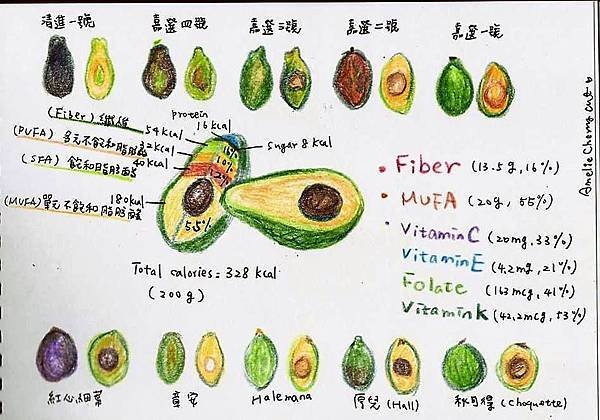 清進一號
嘉選四號
嘉選三號
嘉選二號
嘉選一號
(Fiber) 纖維
54 kcal
protein
16 kcal
sugar 8 kcal
(PUFA) 多元不飽和脂肪酸
32 kcal
(SFA) 飽和脂肪酸
40 kcal
(MUFA) 單元不飽和脂肪酸
180 kcal
16%
10%
12%
55%
Total calories = 328 kcal
(200g)
• Fiber (13.5g, 16%)
• MUFA (20g, 55%)
• Vitamin C (20mg, 33%)
Vitamin E (4.2mg, 21%)
Folate (163 mcg, 41%)
Vitamin K (42.2mcg, 53%)
Amelie Chomg art
紅心細葉
章安
Halemana
厚兒 (Hall)
秋可得 (Choquette)